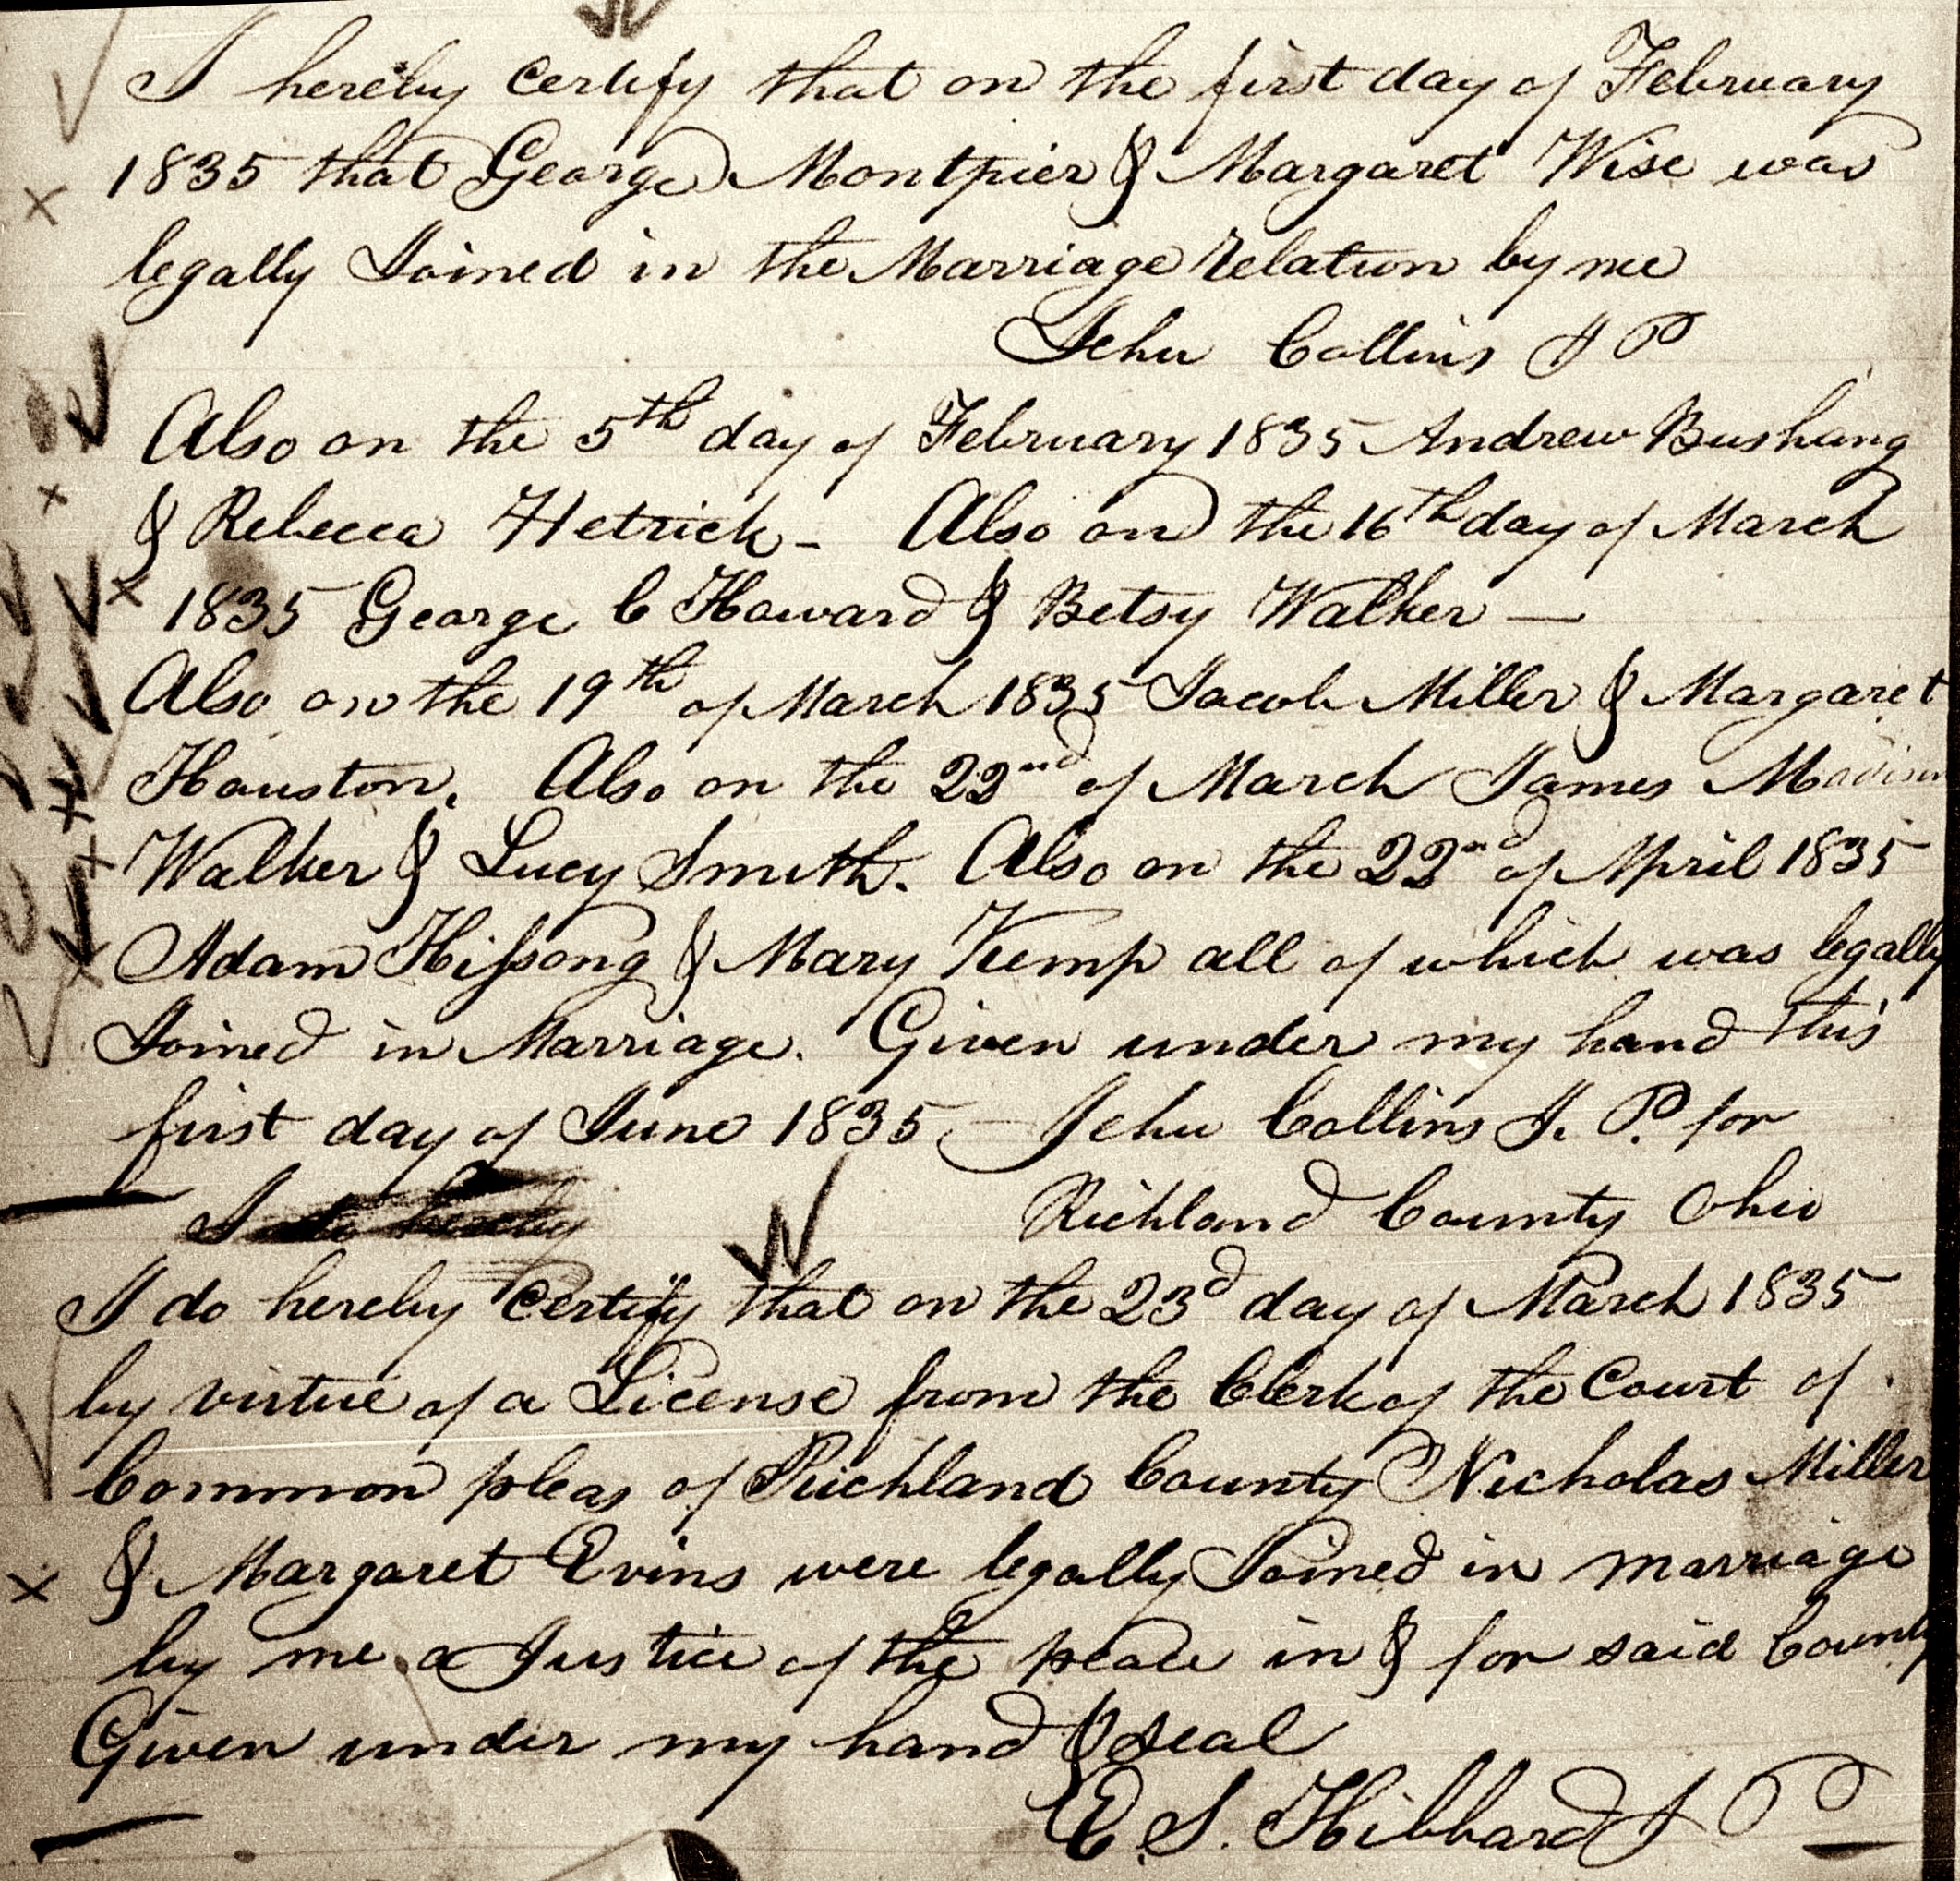 I hereby certify that on the first day of February
1835 that George Montpier & Margaret Wise was
legally Joined in the Marriage relation by me
Jehu Collins J P
Also on the 5th day of February 1835 Andrew Bushang
& Rebecca Hetrick - Also on the 16th day of March
1835 George C Howard & Betsy Walker —
Also on the 19th of March 1835 Jacob Miller & Margaret
Houston. Also on the 22nd of March James Madison
Walker & Lucy Smith. Also on the 22nd of April 1835
Adam Hissong & Mary Kemp all of which was legally
Joined in Marriage. Given under my hand this
first day of June 1835 - Jehu Collins J. P. for
I do hereby Richland County Ohio
I do hereby Certify that on the 23d day of March 1835
by virtue of a License from the Clerk of the Court of
Common pleas of Richland County Nicholas Miller
& Margaret Evins were legally Joined in marriage
by me a Justice of the peace in & for said County
Given under my hand & seal
E. S. Hibbard J P